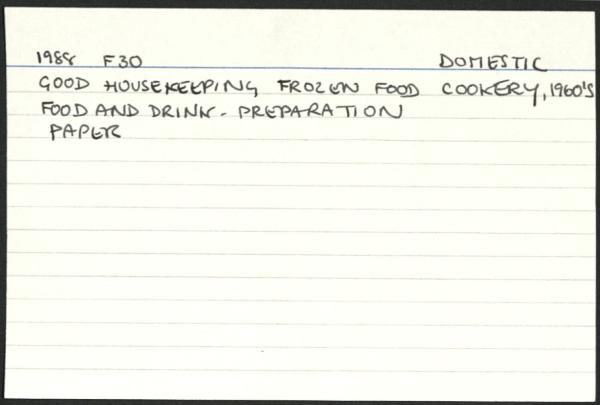 1988 F30 DOMESTIC
GOOD HOUSEKEEPING FROZEN FOOD COOKERY, 1960'S
FOOD AND DRINK - PREPARATION
PAPER